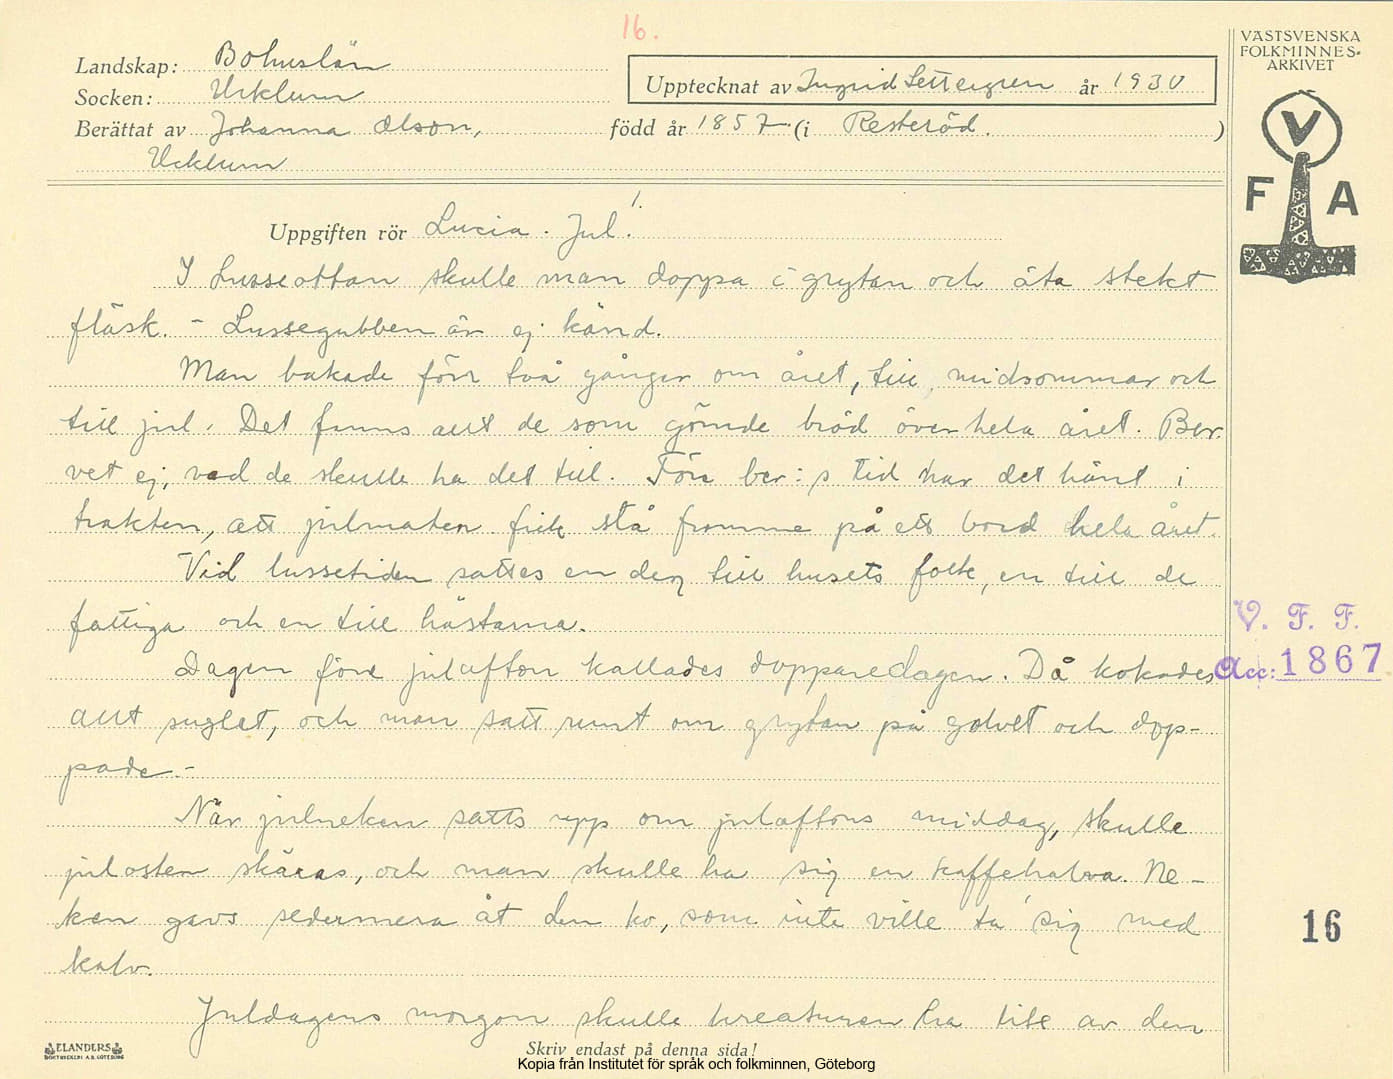 16.
VÄSTSVENSKA
FOLKMINNES-
ARKIVET
Landskap: Bohuslän
Socken: Ucklum
Upptecknat av Ingrid Settergren år 1930
Berättat av Johanna Olson, född år 1857 (i Resteröd.)
Ucklum
V
F A
Uppgiften rör Lucia. Jul. 1.
I Lusseottan skulle man doppa i grytan och äta stekt
fläsk. - Lussegubben är ej känd.
Man bakade förr två gånger om året, till midsommar och
till jul. Det fanns allt de som gömde bröd över hela året. Ber.
vet ej, vad de skulle ha det till. Före ber:s tid har det hänt i
trakten, att julmaten fick stå framme på ett bord hela året.
Vid lussetiden sattes en deg till husets folk, en till de
fattiga och en till hästarna.
Dagen före julafton kallades dopparedagen. Då kokades
allt suglet, och man satt runt om grytan på golvet och dop-
pade.-
När julneken satts upp om julaftons middag, skulle
julosten skäras, och man skulle ha sig en kaffehalva. Ne-
ken gavs sedermera åt den ko, som inte ville ta sig med
kalv.
Juldagens morgon skulle kreaturen ha lite av den
V. F. F.
Acc: 1867
16
ELANDERS
BOKTRYCKERI A.B. GÖTEBORG
Skriv endast på denna sida!
Kopia från Institutet för språk och folkminnen, Göteborg